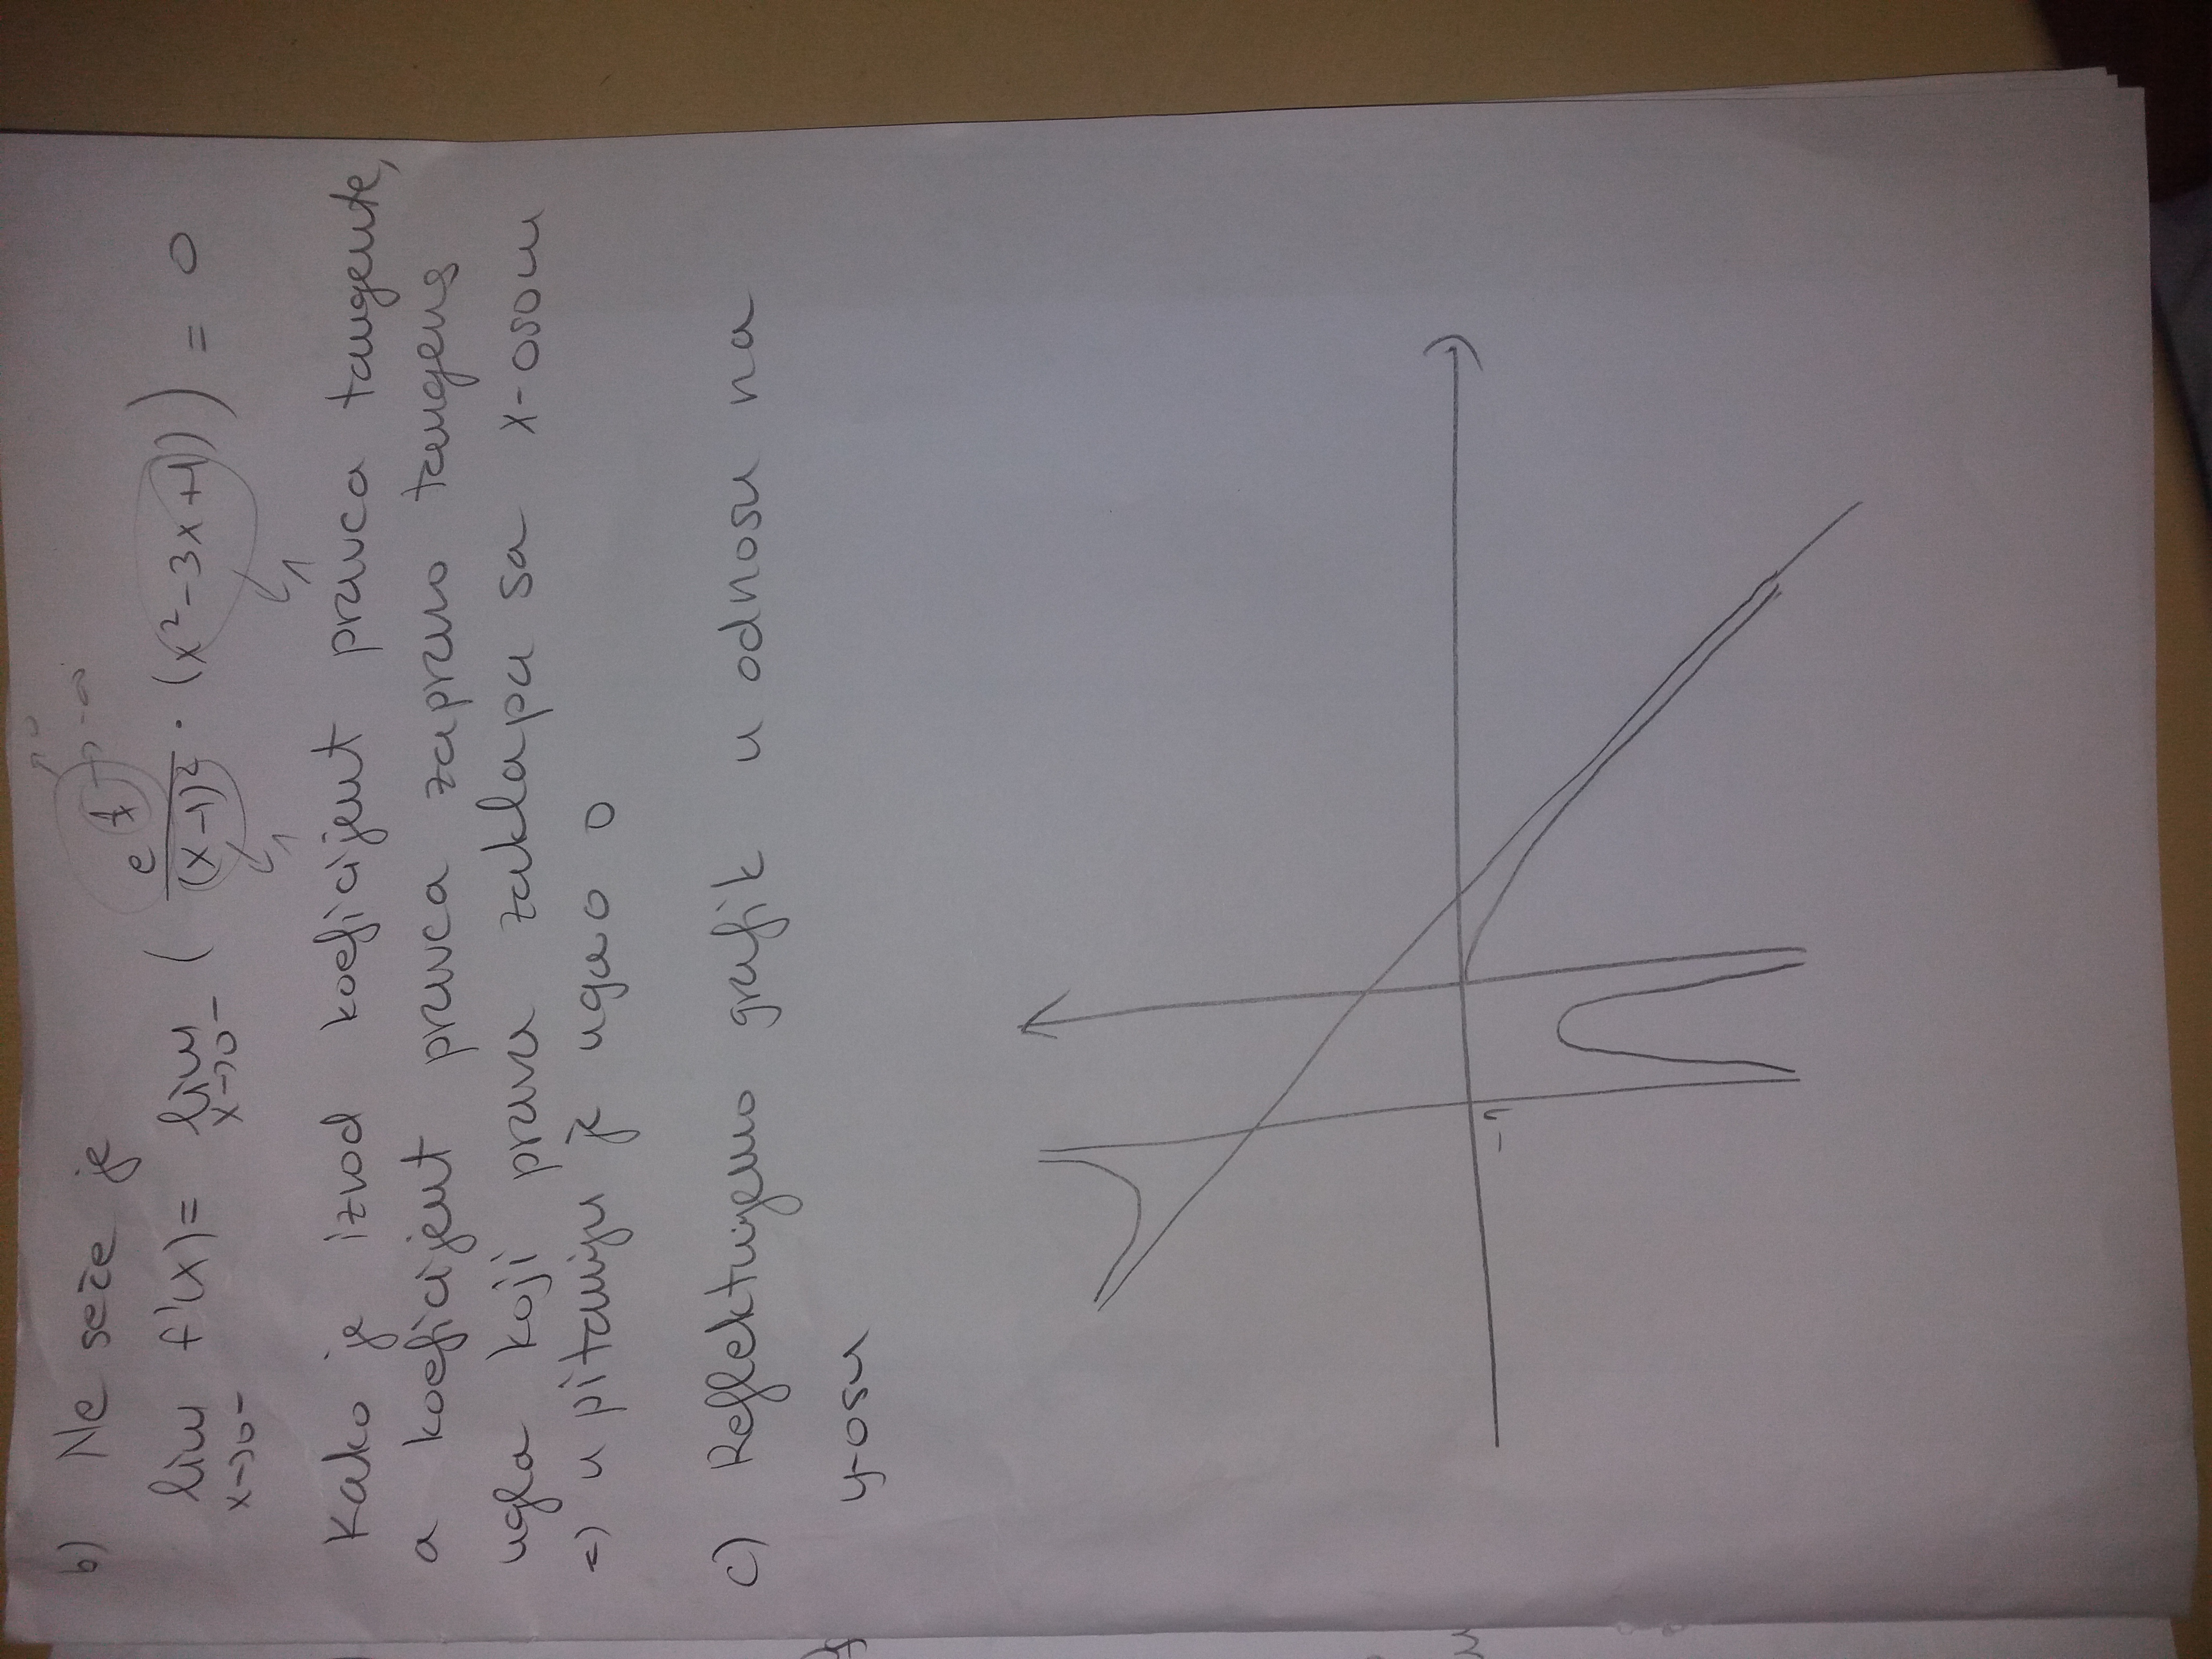 b) Ne seče je
lim x→0- f'(x) = lim x→0- ( e^(1/x) / (x-1)² · (x²-3x+1)) ) = 0
→ 0
→ -∞
1
1
Kako je izvod koeficijent pravca tangente,
a koeficijent pravca zapravo tangens
ugla koji prava zaklapa sa x-osom
=> u pitanju je ugao 0
c) Reflektujemo grafik u odnosu na
y-osu
-1